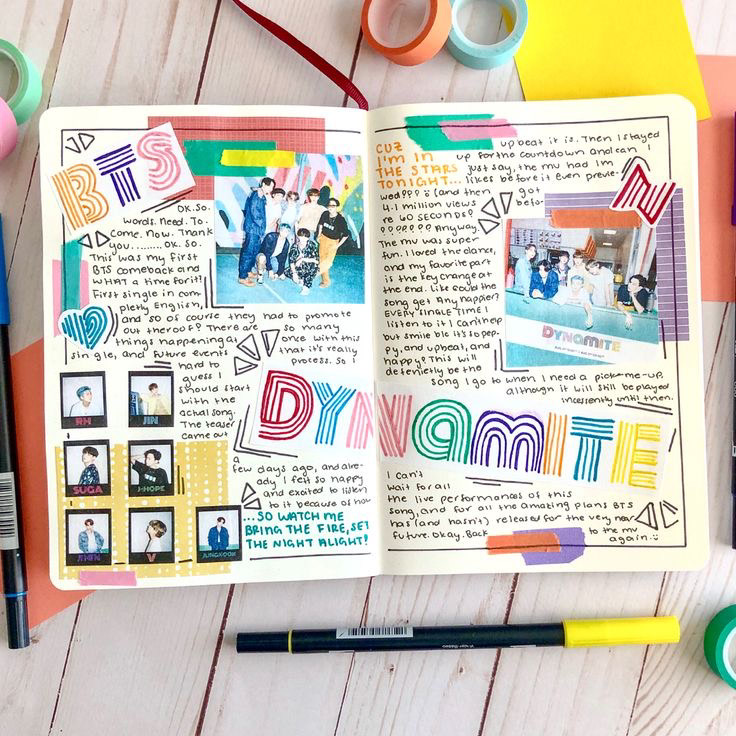 BTS
OK. SO.
words. Need. To.
Come. Now. Thank
you......... OK. SO.
This was my first
BTS comeback and
WHAT a time for it!
First single in com
pletly English,
and so of course they had to promote
out thereof? There are so many
things happening at once with this
single, and future events that it's really
hard to process. So I
guess I
should start
with the
actual song.
The teaser
came out
a
few days ago, and alre-
ady I felt so happy
and excited to listen
to it because of how
...SO WATCH ME
BRING THE FIRE, SET
THE NIGHT ALIGHT!
RM
JIN
SUGA
J-HOPE
JIMIN
V
JUNGKOOK
DYNAMITE
CUZ
I'M IN
THE STARS
TONIGHT...
upbeat it is. Then I stayed
up for the countdown and can I
just say, the mv had 1m
likes before it even previe-
wed??? & (and then got
4.1 million views befo-
re 60 SECONDS?
??????? Anyway.
The mv was super
fun. I loved the dance,
and my favorite part
is the key change at
the end. Like could the
song get Any happier?
EVERY SINGLE TIME I
listen to it I can't help
but smile b/c it's so pep-
py, and upbeat, and
happy? This will
defenietly be the
song I go to when I need a pick-me-up,
although it will still be played
incessently until then.
N
DYNAMITE
I can't
wait for all
the live performances of this
song, and for all the amazing plans BTS
has (and hasn't) released for the very near
future. Okay. Back to the mv
again. :)